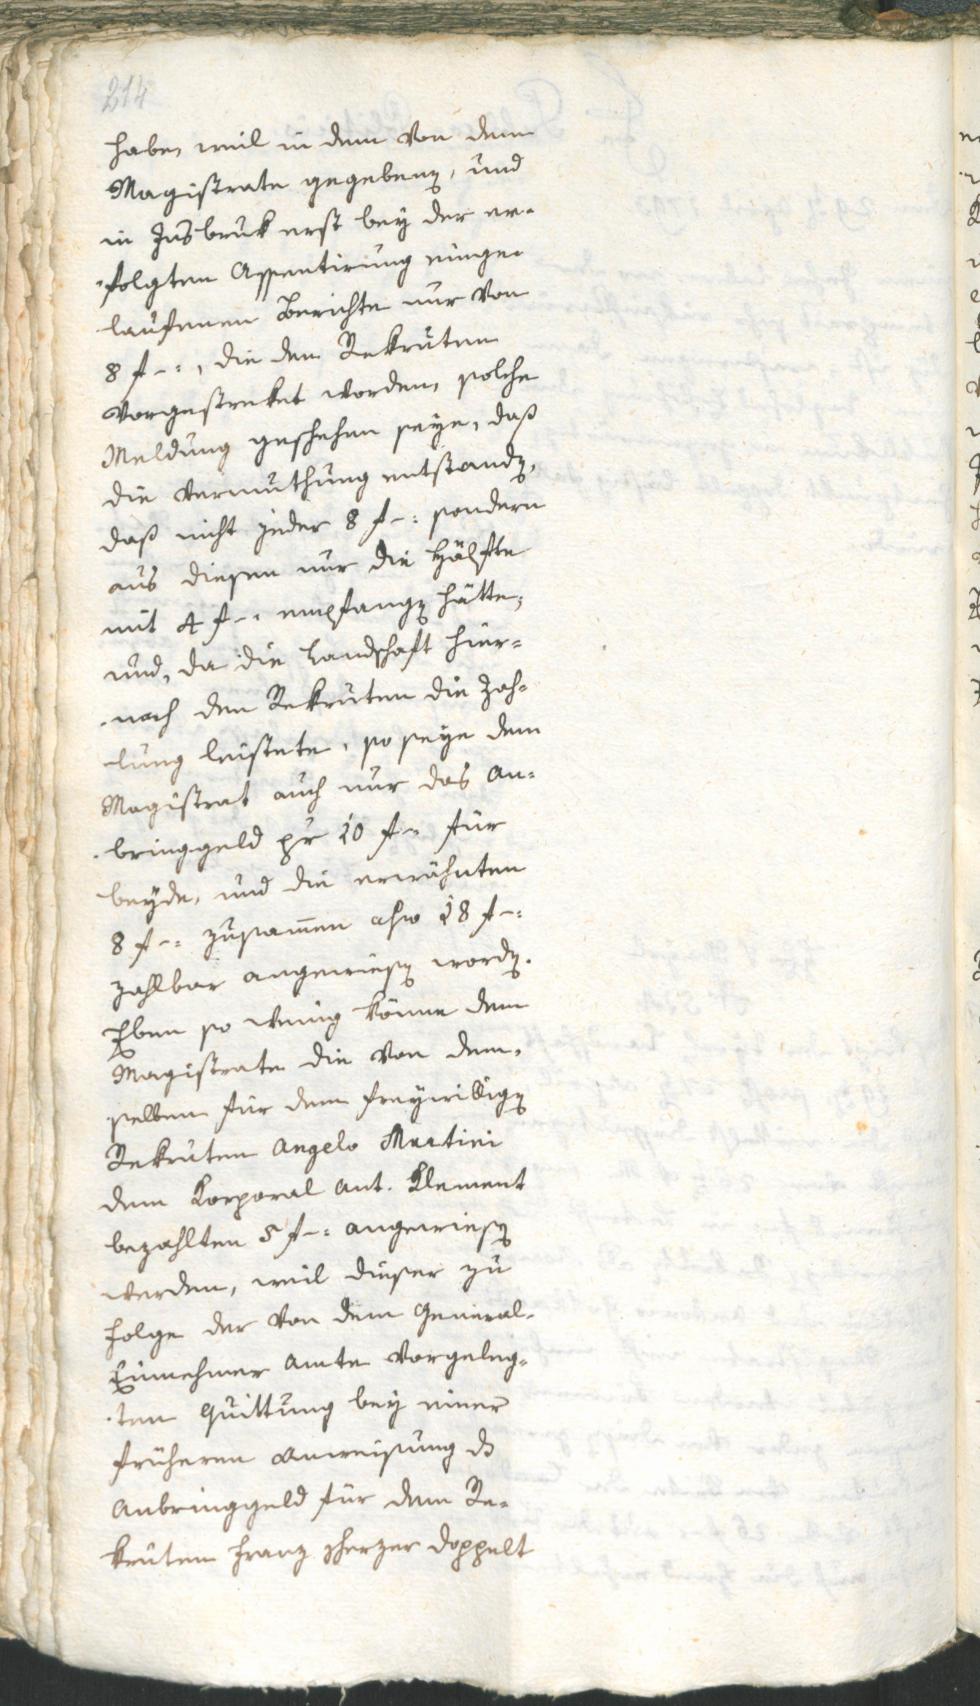 214
habe, weil in dem von dem
Magistrate gegebenen, und
in Insbruk erst bey der er-
folgten Assentirung einge-
laufenen Berichte nur von
8 f -: , die den Rekruten
vorgestreket worden, solche
Meldung geschehen seye, daß
die Vermuthung entstanden,
daß nicht jeder 8 f -: sondern
aus diesen nur die Hälfte
mit 4 f -: empfangen hätte;
und, da die Landschaft hier-
nach den Rekruten die Zah-
lung leistete, so seye dem
Magistrat auch nur das An-
bringgeld pr 10 f -: für
beyde, und die erwähnten
8 f -: zusamen also 18 f -:
zahlbar angewiesen worden.
Eben so wenig könne dem
Magistrate die von dem-
selben für dem freywilligen
Rekruten Angelo Martini
dem Korporal Ant. Klement
bezahlten 5 f -: angewiesen
werden, weil dieser zu
folge der von dem General-
Einnehmer Amte vorgeleg-
ten Quittung bey einer
früheren Anweisung des
Anbringgeld für dem Re-
kruten Franz doppelt